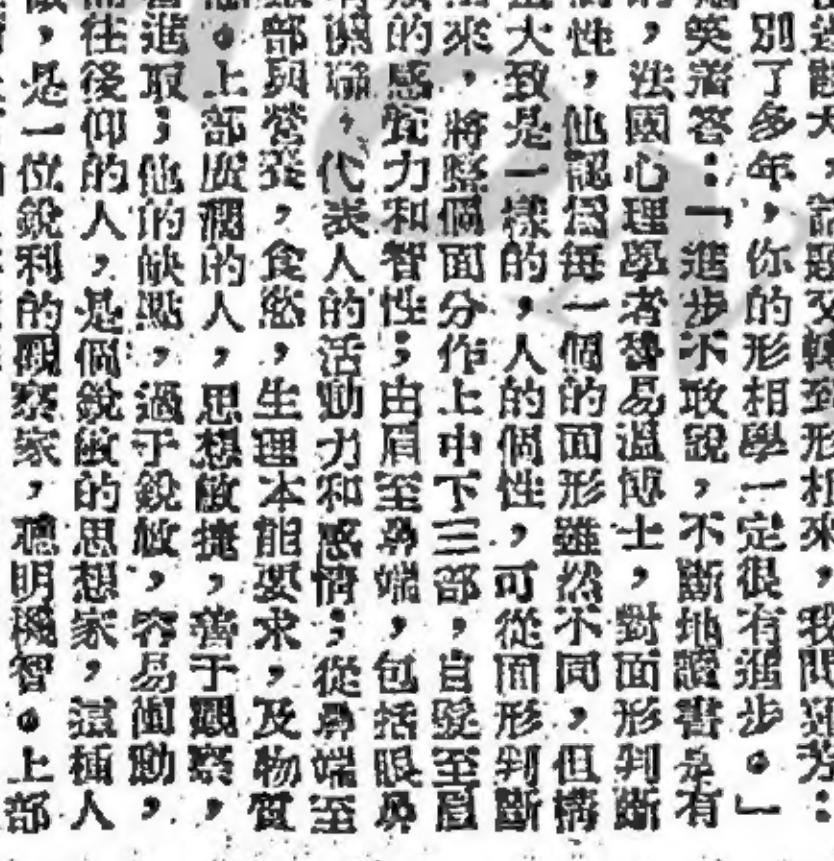 大,話題又轉到形相來,我問芳:
別了多年,你的形相學一定很有進步。」
笑着答:「進步不敢說,不斷地讀書是有
,法國心理學者易溫博士,對面形判斷
性,他認爲每一個的面形雖然不同,但構
大致是一樣的,人的個性,可從面形判斷
來,將整個面分作上中下三部,自髮至眉
的感覺力和智性;由眉至鼻端,包括眼鼻
關聯,代表人的活動力和感情;從鼻端至
部與營養,食慾,生理本能要求,及物質
。上部廣濶的人,思想敏捷,善于觀察,
進取;他的缺點,過于銳敏,容易衝動,
往後仰的人,是個銳敏的思想家,這種人
,是一位銳利的觀察家,聰明機智。上部